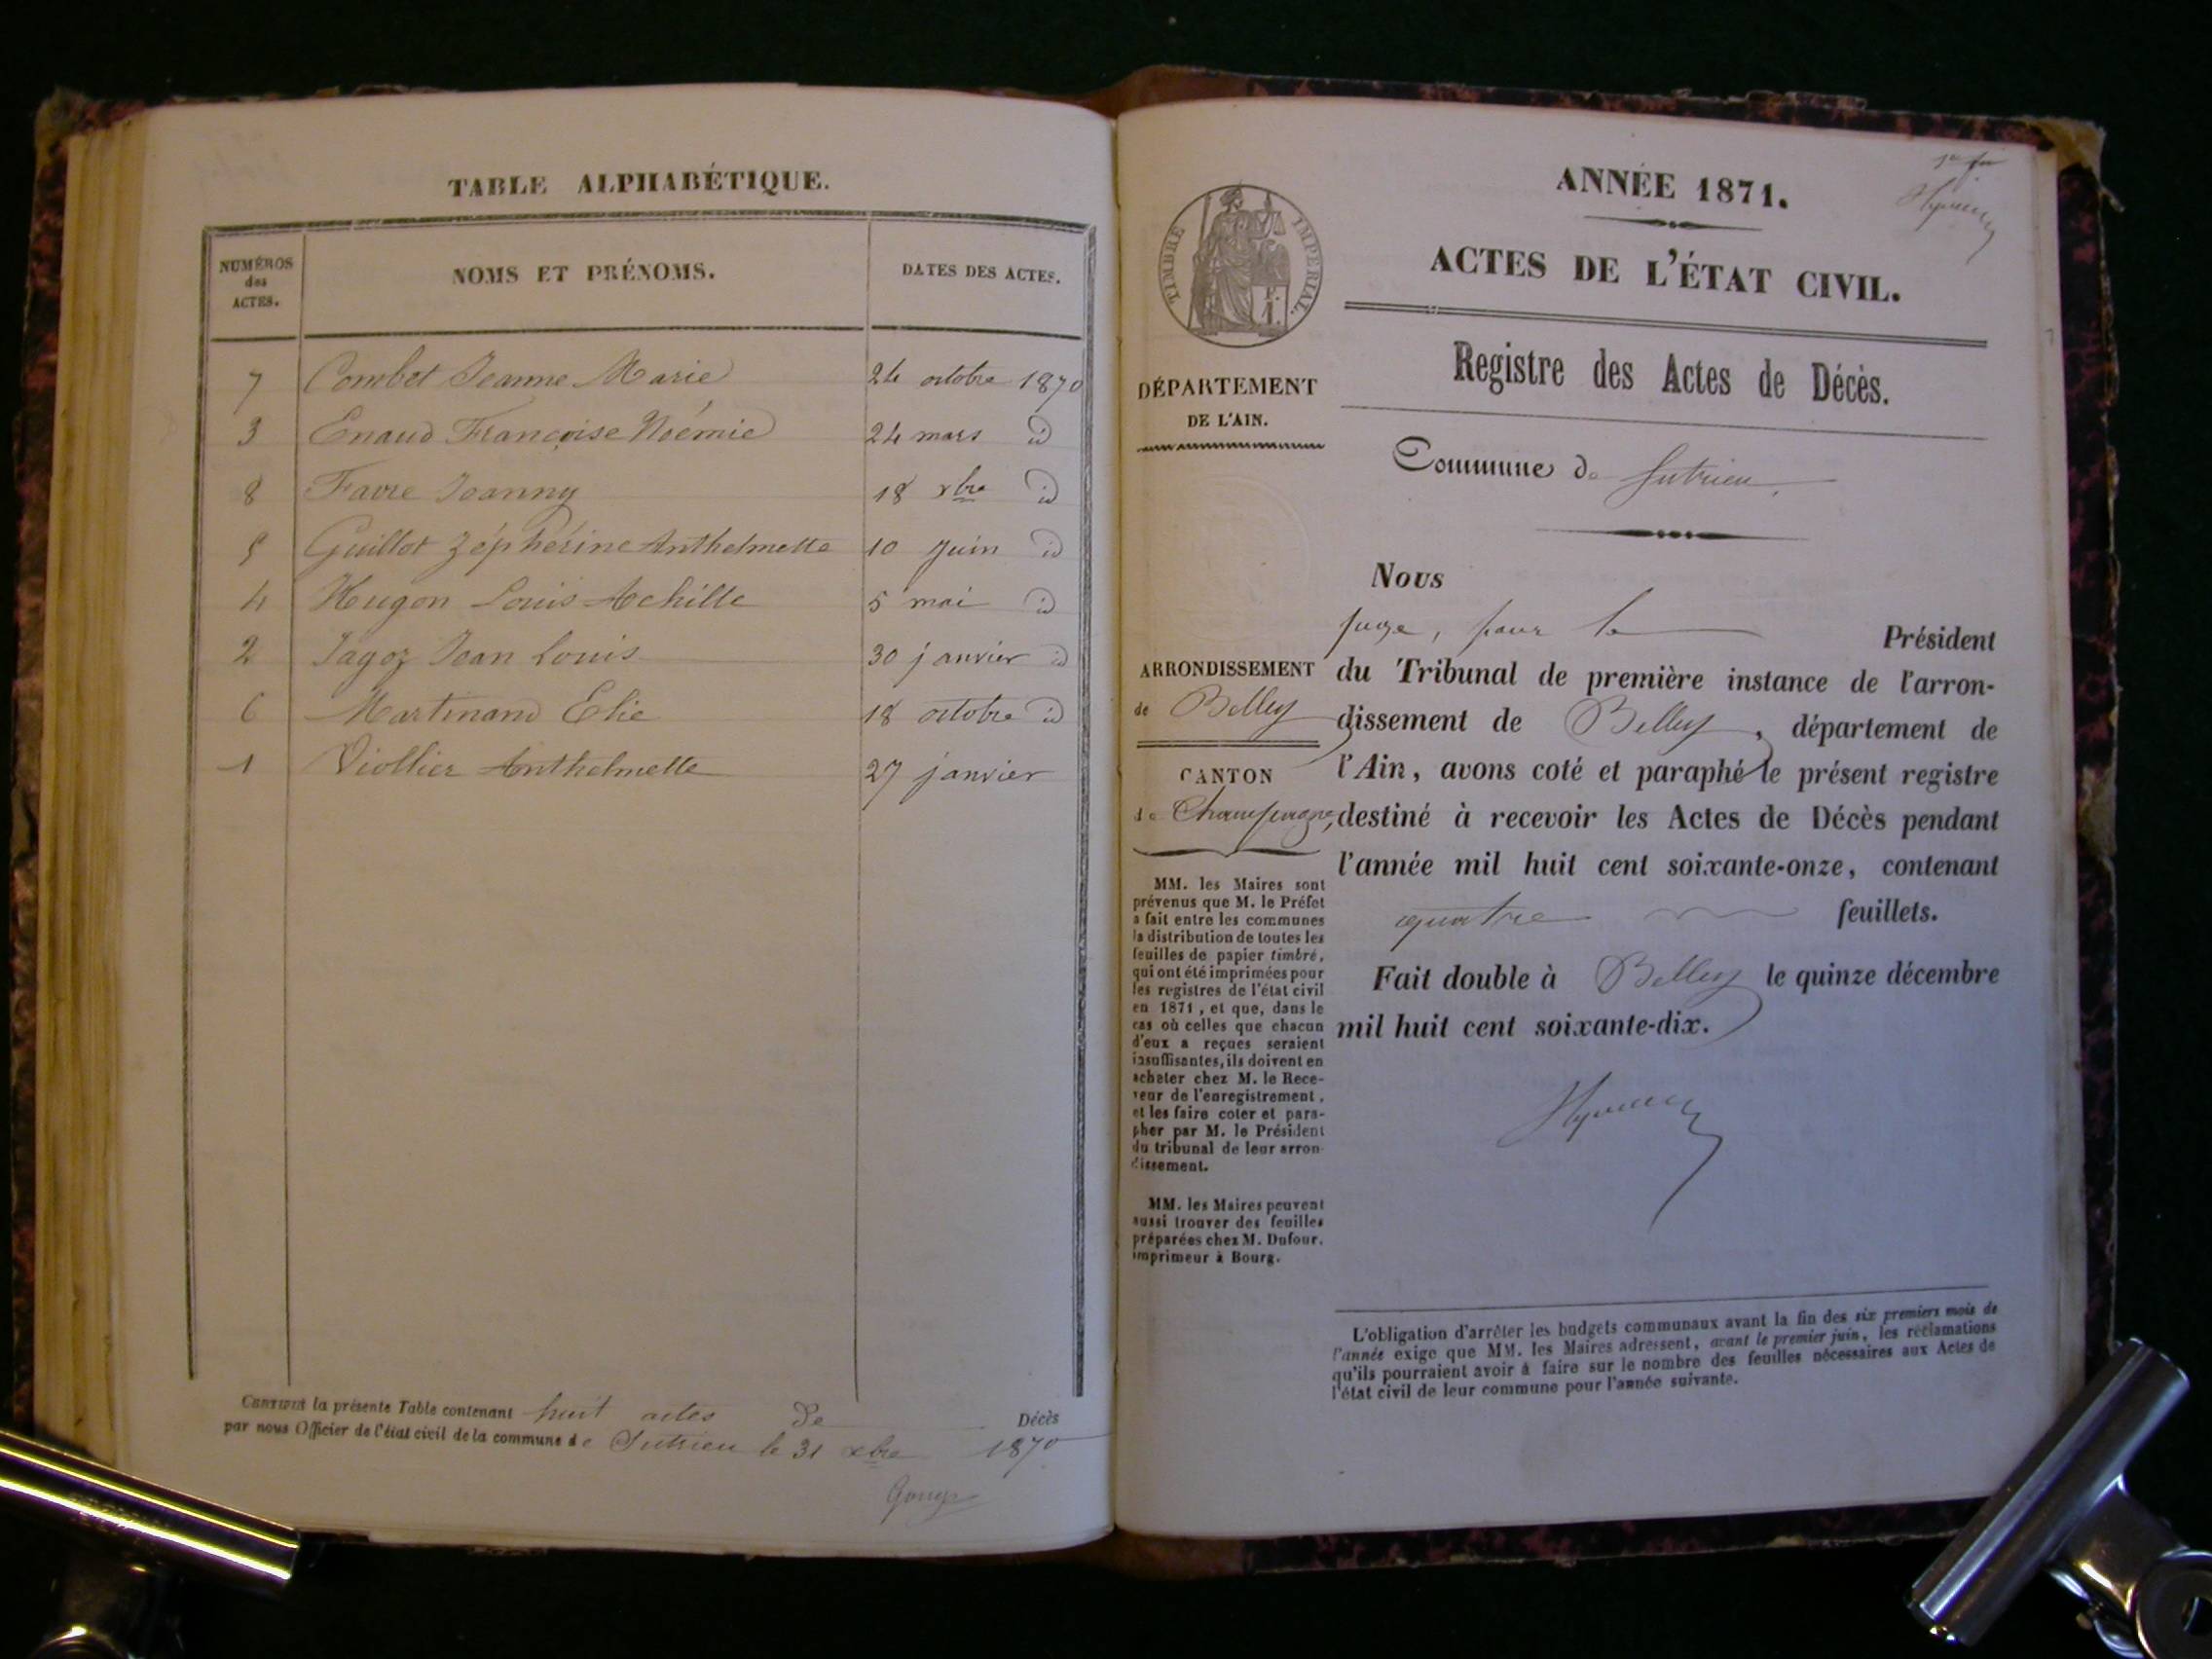 TABLE ALPHABÉTIQUE.
NUMÉROS des ACTES. NOMS ET PRÉNOMS. DATES DES ACTES.
7 Combet Jeanne Marie 24 octobre 1870
3 Enaud Françoise Noémie 24 mars id
8 Favre Joanny 18 xbre id
5 Guillot Zéphérine Anthelmette 10 Juin id
4 Hugon Louis Achille 5 mai id
2 Jagoz Jean Louis 30 janvier id
6 Martinand Elie 18 octobre id
1 Viollier Anthelmette 27 janvier
CERTIFIÉ la présente Table contenant huit actes de Décès
par nous Officier de l'état civil de la commune de Sutrieu le 31 xbre 1870
TIMBRE IMPÉRIAL.
DÉPARTEMENT
DE L'AIN.
ARRONDISSEMENT
de Belley
CANTON
de Champagne,
MM. les Maires sont
prévenus que M. le Préfet
a fait entre les communes
la distribution de toutes les
feuilles de papier timbré,
qui ont été imprimées pour
les registres de l'état civil
en 1871, et que, dans le
cas où celles que chacun
d'eux a reçues seraient
insuffisantes, ils doivent en
acheter chez M. le Rece-
veur de l'enregistrement,
et les faire coter et para-
pher par M. le Président
du tribunal de leur arron-
dissement.
MM. les Maires peuvent
aussi trouver des feuilles
préparées chez M. Dufour,
imprimeur à Bourg.
ANNÉE 1871.
ACTES DE L'ÉTAT CIVIL.
Registre des Actes de Décès.
Commune de Sutrieu.
Nous
juge, pour le Président
du Tribunal de première instance de l'arron-
dissement de Belley, département de
l'Ain, avons coté et paraphé le présent registre
destiné à recevoir les Actes de Décès pendant
l'année mil huit cent soixante-onze, contenant
quatre feuillets.
Fait double à Belley le quinze décembre
mil huit cent soixante-dix.
L'obligation d'arrêter les budgets communaux avant la fin des six premiers mois de
l'année exige que MM. les Maires adressent, avant le premier juin, les réclamations
qu'ils pourraient avoir à faire sur le nombre des feuilles nécessaires aux Actes de
l'état civil de leur commune pour l'année suivante.